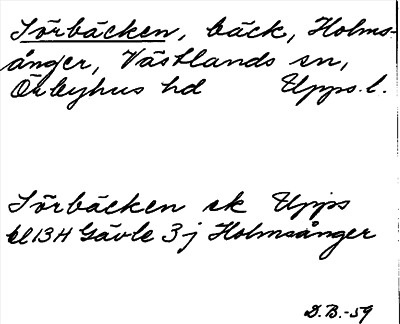 Sörbäcken, bäck, Holms-
ånger, Västlands sn,
Örbyhus hd Upps. l.
Sörbäcken ek Upps
bl 13H Gävle 3j Holmsånger
D.B.-59